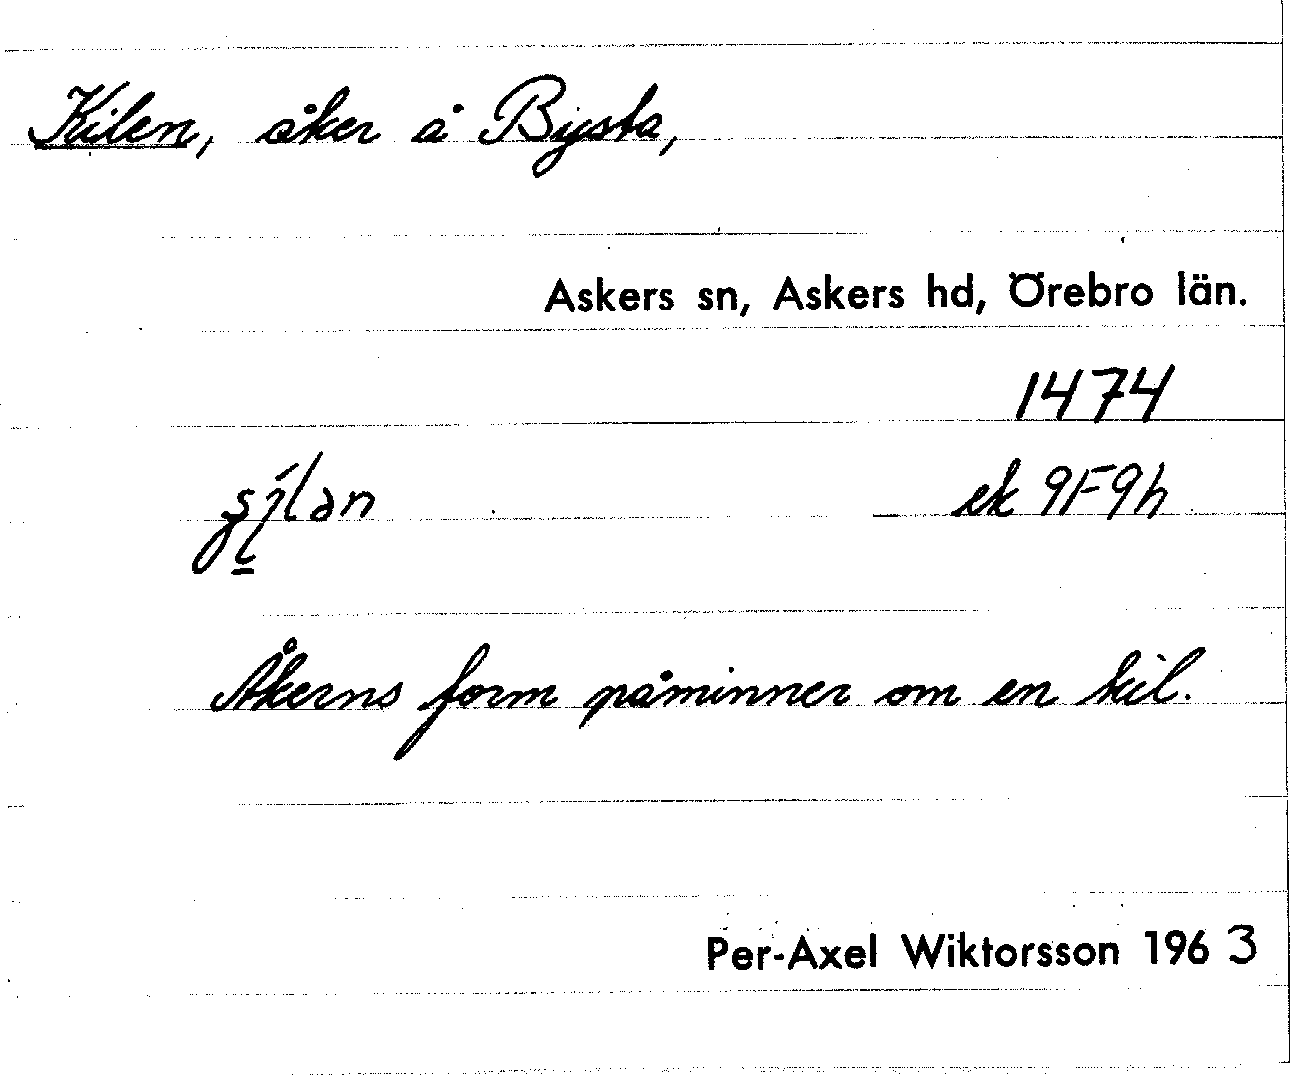 Kilen, åker å Bysta,
Askers sn, Askers hd, Örebro län.
1474
ek 9F9h
Åkerns form påminner om en kil.
Per-Axel Wiktorsson 1963